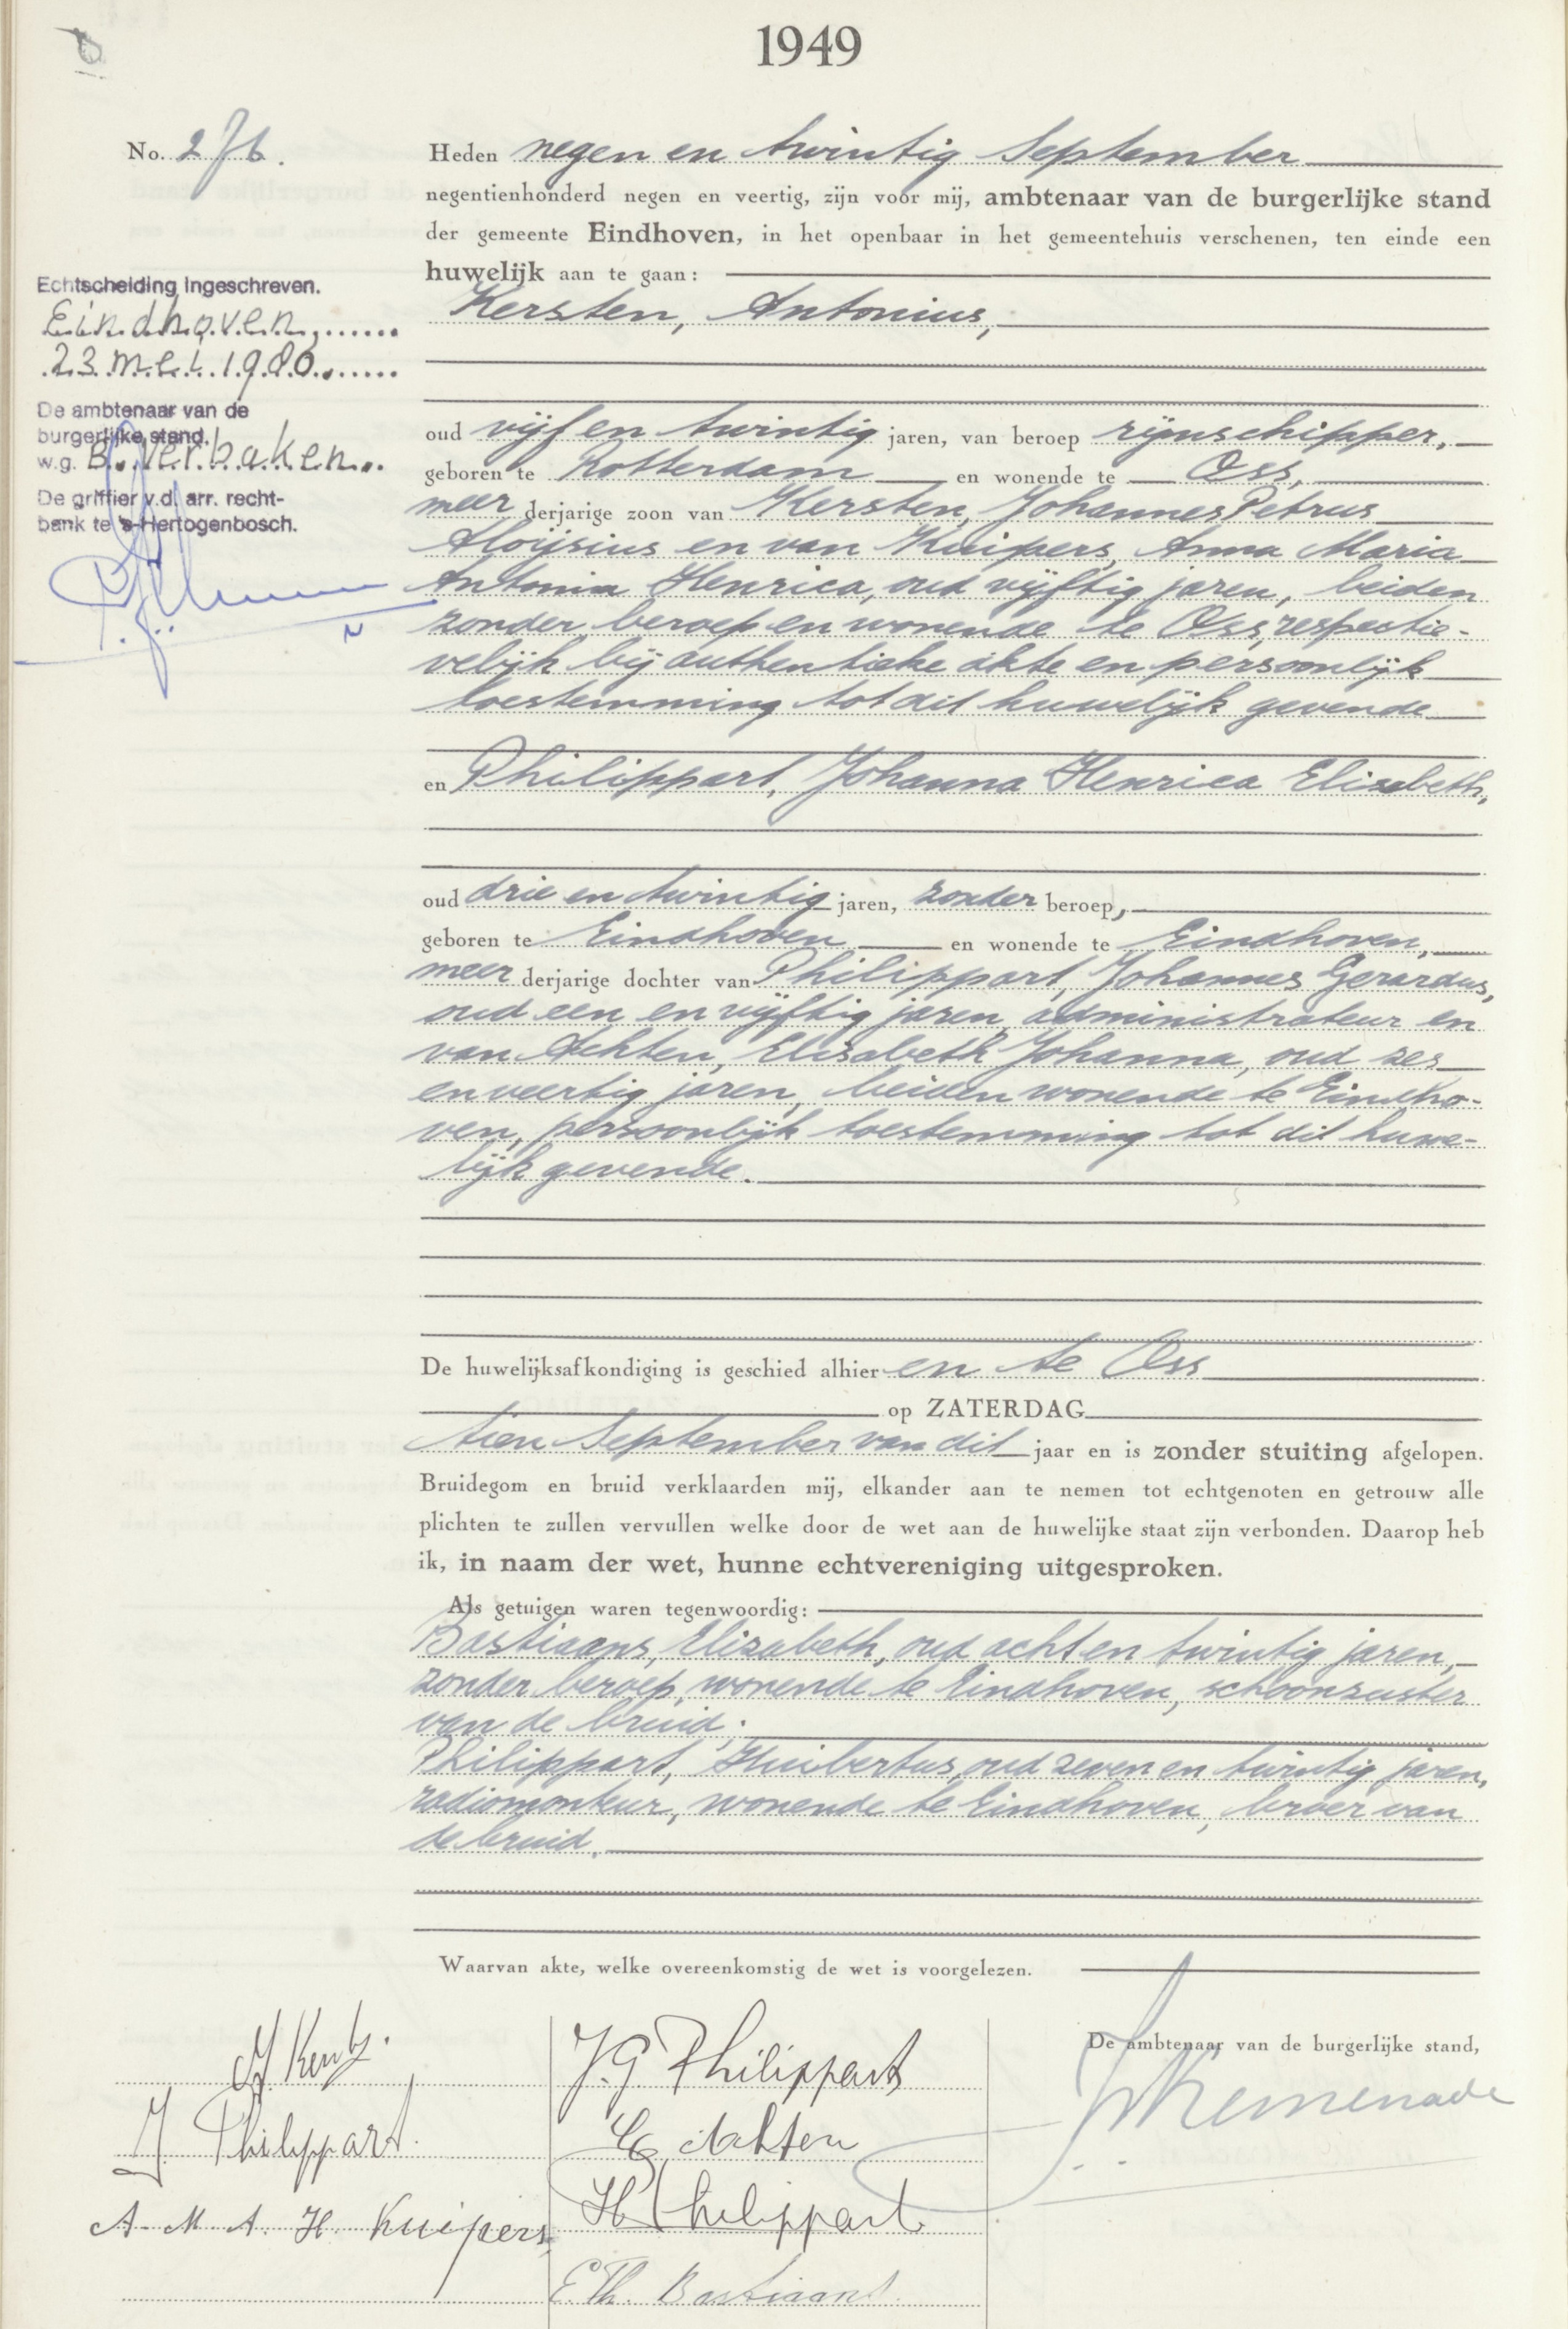 1949
No. 276.
Heden negen en twintig September
negentienhonderd negen en veertig, zijn voor mij, ambtenaar van de burgerlijke stand
der gemeente Eindhoven, in het openbaar in het gemeentehuis verschenen, ten einde een
huwelijk aan te gaan:
Echtscheiding ingeschreven.
Eindhoven,
23 mei 1980
De ambtenaar van de
burgerlijke stand.
w.g. B. Verbaken
De griffier v.d. arr. recht-
bank te 's-Hertogenbosch.
Kersten, Antonius,
oud vijf en twintig jaren, van beroep rijnschipper,
geboren te Rotterdam en wonende te Oss,
meer derjarige zoon van Kersten, Johannes Petrus
Aloijsius en van Kuipers, Anna Maria
Antonia Henrica, oud vijftig jaren, beiden
zonder beroep en wonende te Oss, respectie-
velijk bij authentieke akte en persoonlijk
toestemming tot dit huwelijk gevende
en Philippart, Johanna Henrica Elisabeth,
oud drie en twintig jaren, zonder beroep,
geboren te Eindhoven en wonende te Eindhoven,
meer derjarige dochter van Philippart, Johannes Gerardus,
oud een en vijftig jaren, administrateur en
van Achten, Elisabeth Johanna, oud zes
en veertig jaren, beiden wonende te Eindho-
ven, persoonlijk toestemming tot dit huwe-
lijk gevende.
De huwelijksafkondiging is geschied alhier en te Oss
op ZATERDAG
tien September van dit jaar en is zonder stuiting afgelopen.
Bruidegom en bruid verklaarden mij, elkander aan te nemen tot echtgenoten en getrouw alle
plichten te zullen vervullen welke door de wet aan de huwelijke staat zijn verbonden. Daarop heb
ik, in naam der wet, hunne echtvereniging uitgesproken.
Als getuigen waren tegenwoordig:
Bastiaans, Elizabeth, oud acht en twintig jaren,
zonder beroep, wonende te Eindhoven, schoonzuster
van de bruid;
Philippart, Huibertus, oud zeven en twintig jaren,
radiomonteur, wonende te Eindhoven, broer van
de bruid.
Waarvan akte, welke overeenkomstig de wet is voorgelezen.
De ambtenaar van de burgerlijke stand,
J Philippart.
A. M. A. H. Kuipers
J. G. Philippart
E. Achten
H Philippart
E. Th. Bastiaans.